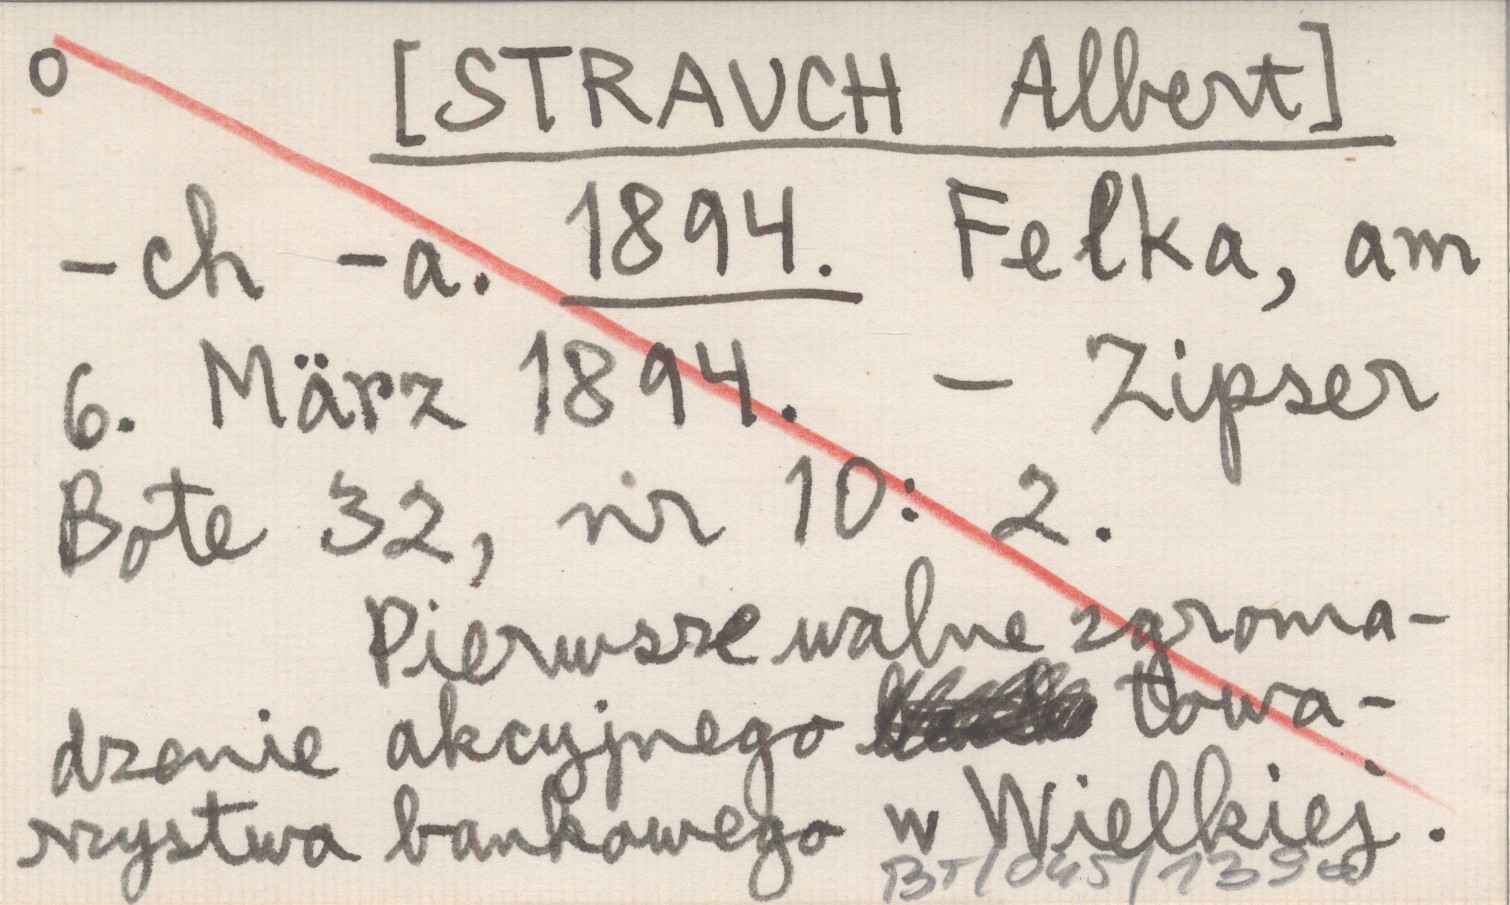 o [STRAUCH Albert]
-ch -a. 1894. Felka, am
6. März 1894. - Zipser
Bote 32, nr 10: 2.
Pierwsze walne zgroma-
dzenie akcyjnego towa-
rzystwa bankowego w Wielkiej.
BT/045/139a